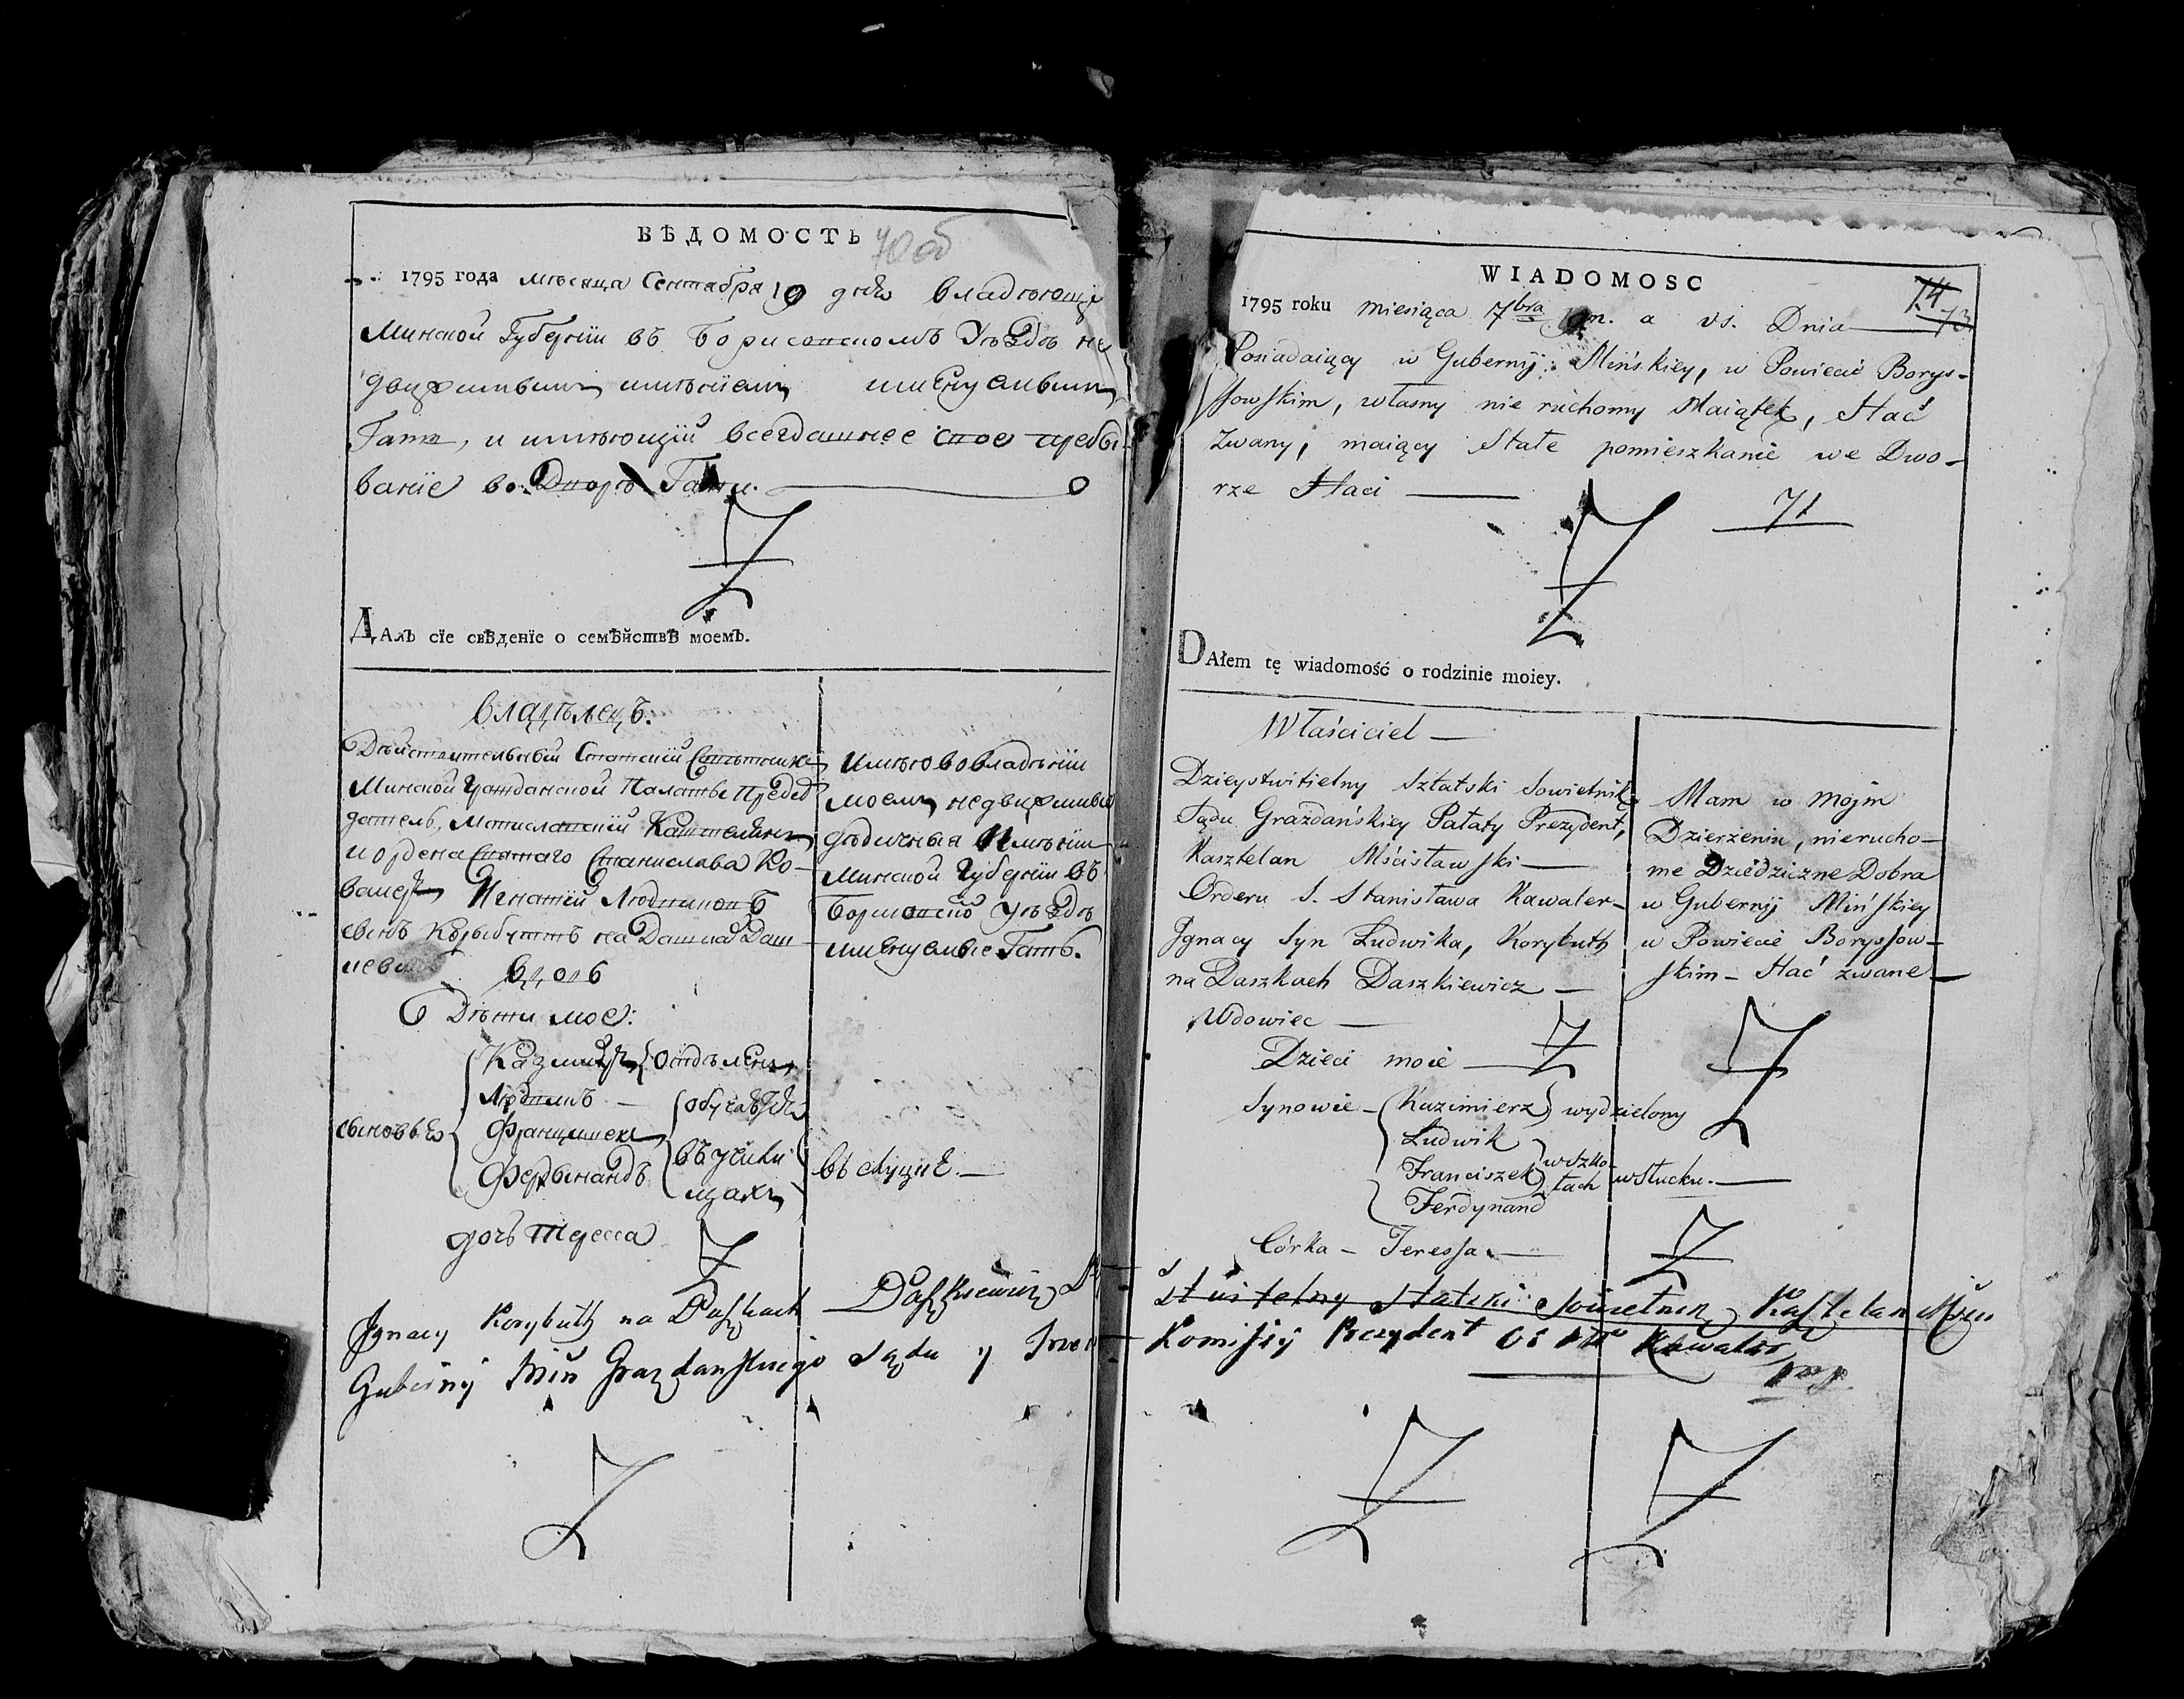 ВѢДОМОСТЬ
70 об
1795 года мѣсяца Сентабря 19 дня владѣющи
Минской Губернїи въ Борисовскомъ Уѣздѣ не
движимымъ имѣнїемъ имѣнуемымъ
Гать, и имѣющїй всегдашнее свое пребы-
ванїе во Дворѣ Гати.
Далъ сїе свѣденїе о семѣйствѣ моемъ.
владѣлецъ.
Дѣйствительный Статскїй Совѣтникъ
Минской Гражданской Палаты Предсѣ
датель, Мстиславскїй Каштелянъ
и ордена Святаго Станислава Ка-
валеръ Игнатїй Людвиковъ
сынъ Корыбутъ на Дашках Даш
кевичъ
вдовъ
Дѣти мое:
сыновья
Казимиръ отдѣленъ
Людвикъ
Францишекъ
Фердынандъ
обучаются
въ учили
щахъ
въ слуцке.
дочь Тересса
имѣю во владѣнїи
моемъ недвижимые
дѣдичныя имѣнїи
Минской Губернїи въ
Борисовско Уѣздѣ
имѣнуемые Гать.
WIADOMOSC
74
73
1795 roku miesiąca 7bra 19 n. a vs. Dnia
Posiadaiący w Gubernij Mińskiey, w Powiecie Borys-
sowskim, własny nie ruchomy Maiątek, Hać
zwany, maiący stałe pomieszkanie we Dwo-
rze Haci
71
DAłem tę wiadomość o rodzinie moiey.
Właściciel
Dzieystwitielny Sztatski Sowietnik
Sądu Grażdańskiey Pałaty Prezydent,
Kasztelan Mścisławski
Orderu S. Stanisława Kawaler-
Jgnacy Syn Ludwika, Korybuth
na Daszkach Daszkiewicz
Wdowiec
Dzieci moie
Synowie - Kazimierz wydzielony
Ludwik
Franciszek
Ferdynand
w szko-
łach w Słucku.
Córka - Teressa
Mam w moim
Dzierżeniu, nierucho-
me Dziedziczne Dobra
w Gubernij Mińskiey
w Powiecie Boryssow-
skim - Hać zwane
Jgnacy Korybuth na Daszkach Daszkiewicz Statski Sowietnik Kasztelan Mści
Guberny Miń Grazdanskiego Sądu y Komissyi Prezydent Kawaler